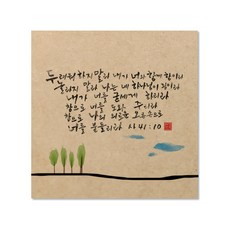 두려워하지 말라 내가 너와 함께 함이라
놀라지 말라 나는 네 하나님이 됨이라
내가 너를 굳세게 하리라
참으로 너를 도와 주리라
참으로 나의 의로운 오른손으로
너를 붙들리라 사 41:10